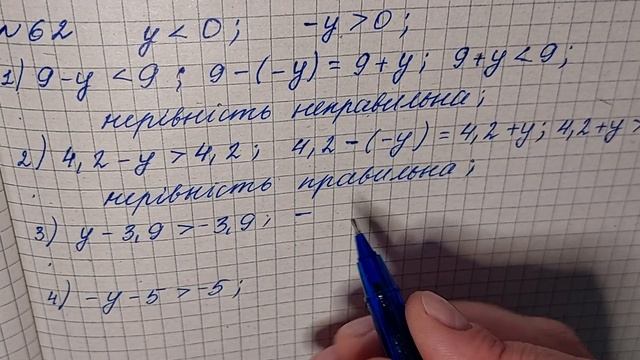 №62 y < 0; -y > 0;
1) 9-y < 9; 9-(-y) = 9+y; 9+y < 9;
нерівність неправильна;
2) 4,2-y > 4,2; 4,2-(-y) = 4,2+y; 4,2+y >
нерівність правильна;
3) y-3,9 > -3,9; -
4) -y-5 > -5;